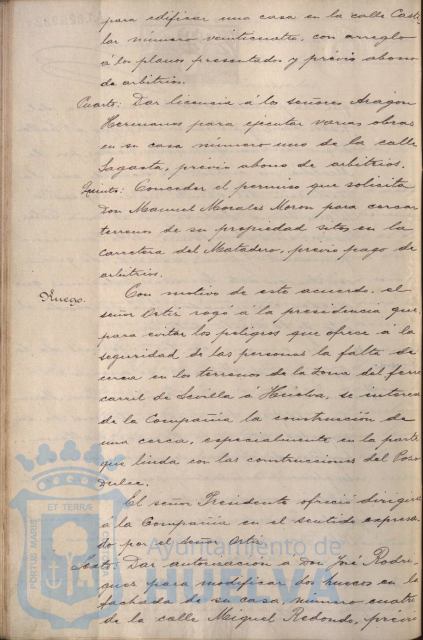 para edificar una casa en la calle Caste-
lar número veinticuatro, con arreglo
á los planos presentados y prévio abono
de arbitrios.
Cuarto: Dar licencia á los señores Aragon
Hermanos para ejecutar varias obras
en su casa número uno de la calle
Sagasta, prévio abono de arbitrios.
Quinto: Conceder el permiso que solicita
Don Manuel Morales Moron para cercar
terrenos de su propiedad sitos en la
carretera del Matadero, previo pago de
arbitrios.
Ruego. Con motivo de este acuerdo, el
señor Ortiz rogó á la presidencia que
para evitar los peligros que ofrece á la
seguridad de las personas la falta de
cerca en los terrenos de la zona del ferro
carril de Sevilla á Huelva, se interese
de la Compañia la construcción de
una cerca, especialmente en la parte
que linda con las construcciones del Pozo
Dulce.
El señor Presidente ofreció dirigirse
á la Compañia en el sentido expresa-
do por el señor Ortiz.
Sexto: Dar autorización a Don José Rodri-
guez para modificar dos huecos en la
fachada de su casa, número cuatro
de la calle Miguel Redondo, prévio
PORTUS MARIS ET TERRÆ
Ayuntamiento de
HUELVA